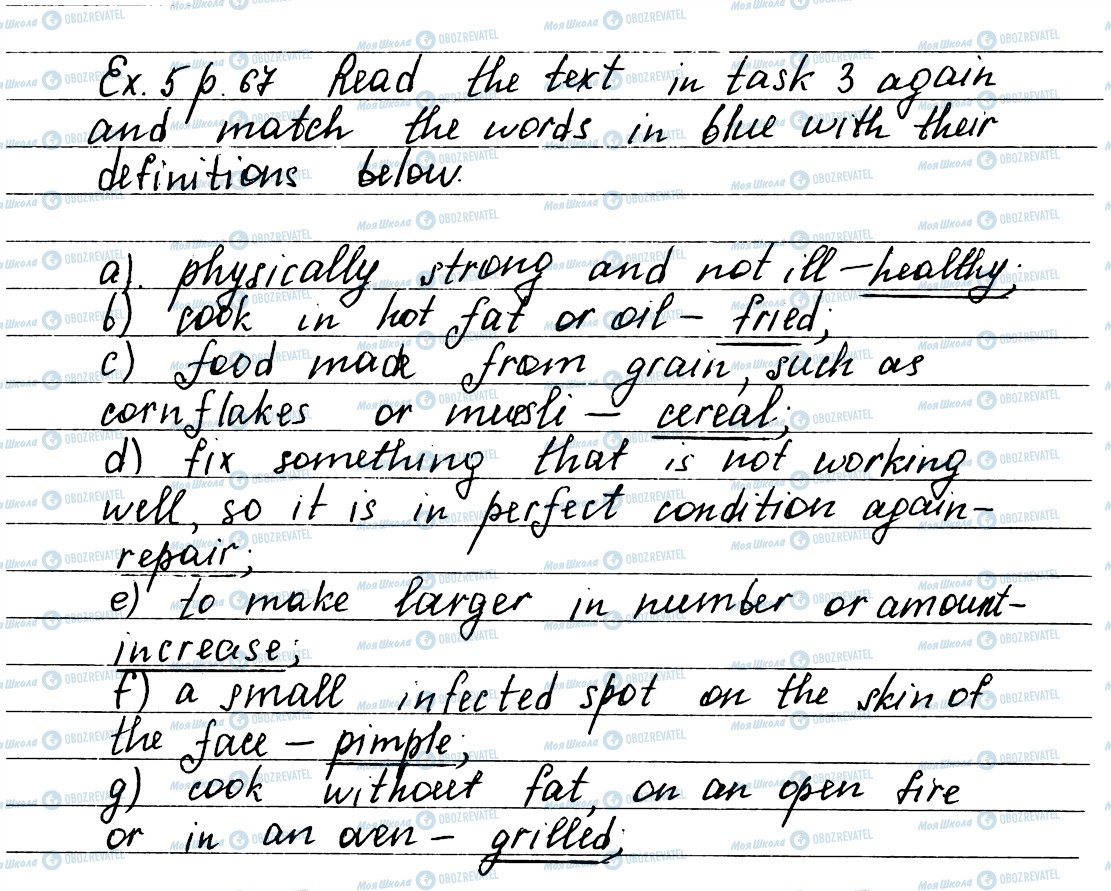 Ex. 5 p. 67 Read the text in task 3 again
and match the words in blue with their
definitions below.
a). physically strong and not ill – healthy;
b) cook in hot fat or oil – fried;
c) food made from grain, such as
cornflakes or muesli – cereal;
d) fix something that is not working
well, so it is in perfect condition again –
repair;
e) to make larger in number or amount –
increase;
f) a small infected spot on the skin of
the face – pimple;
g) cook without fat, on an open fire
or in an oven – grilled;